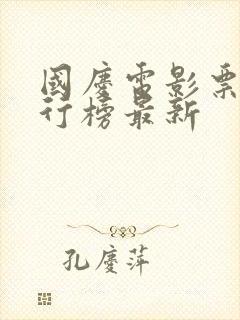 國慶電影票
行榜最新
孔慶萍